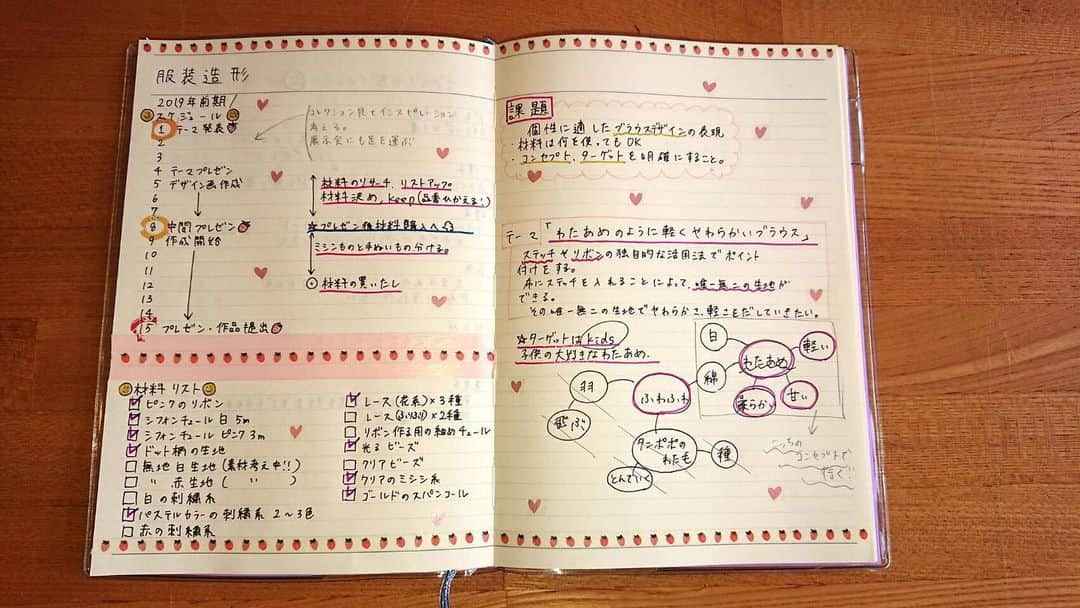 服装造形
2019年前期
スケジュール
コレクション見てインスピレーション
考える。
展示会にも足を運ぶ
1 テーマ発表
2
3
4 テーマプレゼン
5 デザイン画作成
6
7
8 中間プレゼン
9 作成開始
10
11
12
13
14
15 プレゼン・作品提出
材料のリサーチ、リストアップ
材料決め、keep(品番ひかえる!)
☆プレゼン後材料購入へ
ミシンものと手ぬいもの分ける。
材料の買いたし
材料リスト
ピンクのリボン
シフォンチュール 白 5m
シフォンチュール ピンク 3m
ドット柄の生地
無地白生地 (素材考え中!!)
〃 赤生地 ( 〃 )
白の刺繍糸
パステルカラーの刺繍糸 2〜3色
赤の刺繍糸
レース (花系) × 3種
レース (ふりふり) × 2種
リボン作る用の細めチュール
光るビーズ
クリアビーズ
クリアのミシン糸
ゴールドのスパンコール
課題
個性に適したブラウスデザインの表現
・材料は何を使ってもOK
・コンセプト、ターゲットを明確にすること。
テーマ「わたあめのように軽くやわらかいブラウス」
ステッチやリボンの独自的な活用法でポイント
付けをする。
布にステッチを入れることによって、唯一無二の生地が
できる。
その唯一無二の生地でやわらかさ、軽さをだしていきたい。
☆ターゲットはkids
子供の大好きなわたあめ.
羽
飛ぶ
ふわふわ
タンポポの
わたも
種
とんでいく
白
綿
わたあめ
軽い
柔らかい
甘い
こっちの
コンセプトで
行く!!